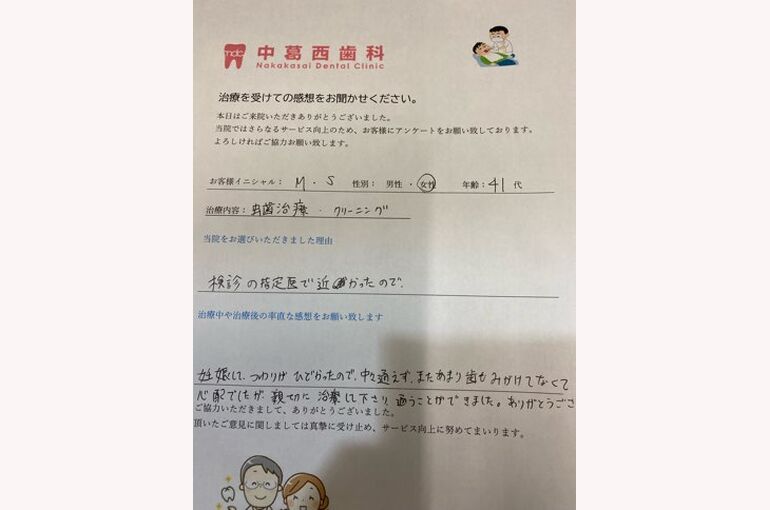 mdc 中葛西歯科
Nakakasai Dental Clinic
治療を受けての感想をお聞かせください。
本日はご来院いただきありがとうございました。
当院ではさらなるサービス向上のため、お客様にアンケートをお願い致しております。
よろしければご協力お願い致します。
お客様イニシャル： M . S 性別： 男性 ・ 女性 年齢：41 代
治療内容：虫歯治療 . クリーニング
当院をお選びいただきました理由
検診の指定医で近かったので.
治療中や治療後の率直な感想をお願い致します
妊娠して、つわりがひどかったので、中々通えず、またあまり歯もみがけてなくて
心配でしたが、親切に治療して下さり通うことができました。ありがとうござ
ご協力いただきまして、ありがとうございました。
頂いたご意見に関しましては真摯に受け止め、サービス向上に努めてまいります。